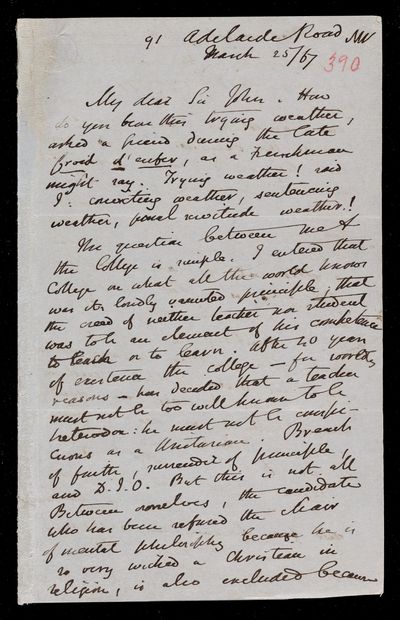 91 Adelaide Road NW
March 25/67
390
My dear Sir John. How
do you bear this trying weather,
asked a friend during the late
froid d'enfer, as a Frenchman
might say. Trying weather! said
I: convicting weather, sentencing
weather, penal servitude weather!
The question between me &
the College is simple. I entered that
College on what all the world knows
was its loudly vaunted principle, that
the creed of neither teacher nor student
was to be an element of his competence
to teach or to learn. After 40 years
of existence the College - for worldly
reasons - has decided that a teacher
must not be too well known to be
heterodox: he must not be conspi-
cuous as a Unitarian. Breach
of faith, surrender of principle,
and D.I.O. But this is not all
Between ourselves, the candidate
who has been refused the chair
of mental philosophy because he is
so very wicked a Christian in
religion, is also excluded because